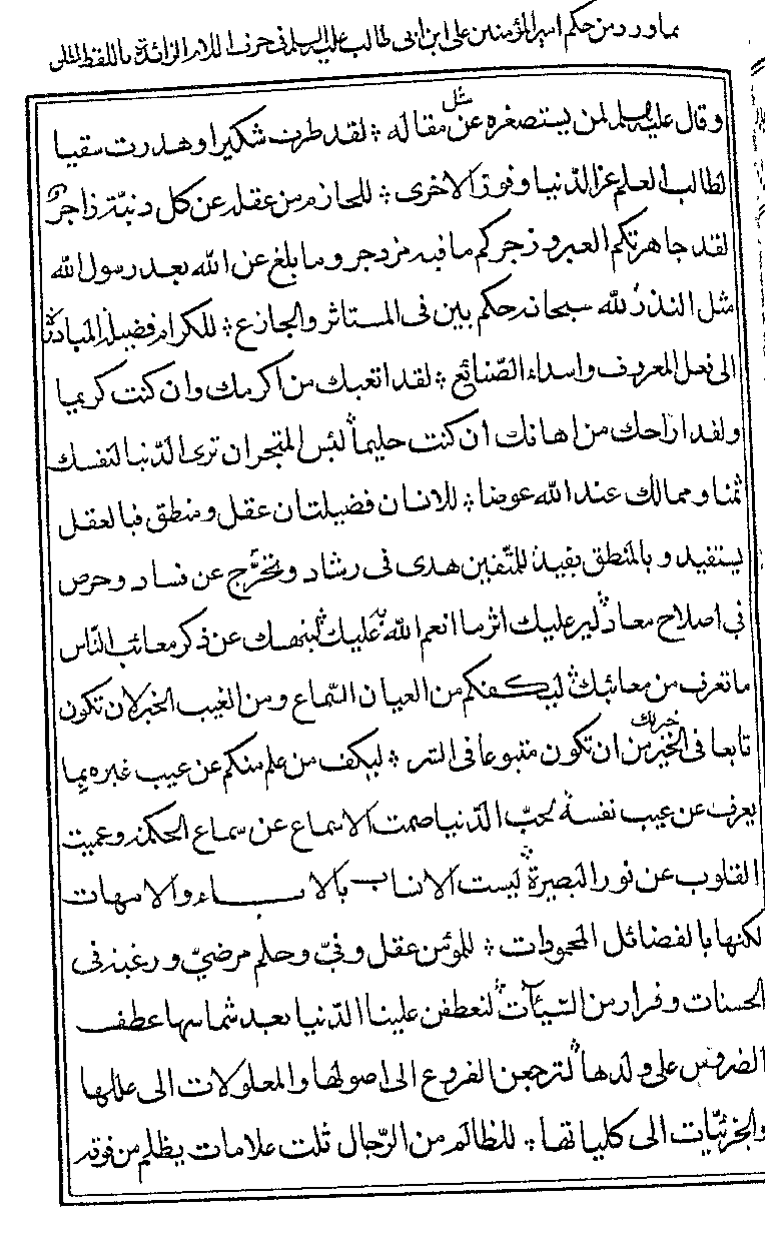 مما ورد من حكم امير المؤمنين على ابن ابى طالب عليه السلم فى حرف اللام الزائدة باللفظ المطلق
و قال عليه السلم لمن يستصغره عن مثل مقاله ؛ لقد طرت شكيرا و هدرت سقبا
لطالب العلم عز الدّنيا و فوز الاخرى ؛ للحازم من عقله عن كل دنيّة زاجر
لقد جاهرتكم العبر و زجركم ما فيه مزدجر و ما بلغ عن الله بعد رسول الله
مثل النذر لله سبحانه حكم بين فى المستاثر و الجازع ؛ للكرام فضيلة المبادرة
الى فعل المعروف و اسداء الصّنائع ؛ لقد اتعبك من اكرمك و ان كنت كريما
و لقد اراحك من اهانك ان كنت حليما لبئس المتجر ان ترى الدّنيا لنفسك
ثمنا و ممالك عند الله عوضا ؛ للانسان فضيلتان عقل و منطق فبالعقل
يستفيد و بالمنطق يفيد للمتّقين هدى فى رشاد و تحرّج عن فساد و حرص
فى اصلاح معاد لير عليك اثر ما انعم الله به عليك لينهك عن ذكر معائب النّاس
ما تعرف من معائبك ليكفكم من العيان السّماع و من الغيب الخبر لان تكون
تابعا فى الخير خير لك من ان تكون متبوعا فى الشر ؛ ليكف من علم منكم عن عيب غيره بما
يعرف عن عيب نفسه لحبّ الدّنيا صمت الاسماع عن سماع الحكمة و عميت
القلوب عن نور البصيرة ليست الانساب بالاباء و الامهات
لكنها بالفضائل المحمودات ؛ للمؤمن عقل و فىّ و حلم مرضىّ و رغبة فى
الحسنات و فرار من السّيئات لتعطفن علينا الدّنيا بعد شماسها عطف
الضروس على ولدها لترجعن الفروع الى اصولها و المعلولات الى عللها
و الجزئيّات الى كلياتها ؛ للظالم من الرّجال ثلث علامات يظلم من فوقه